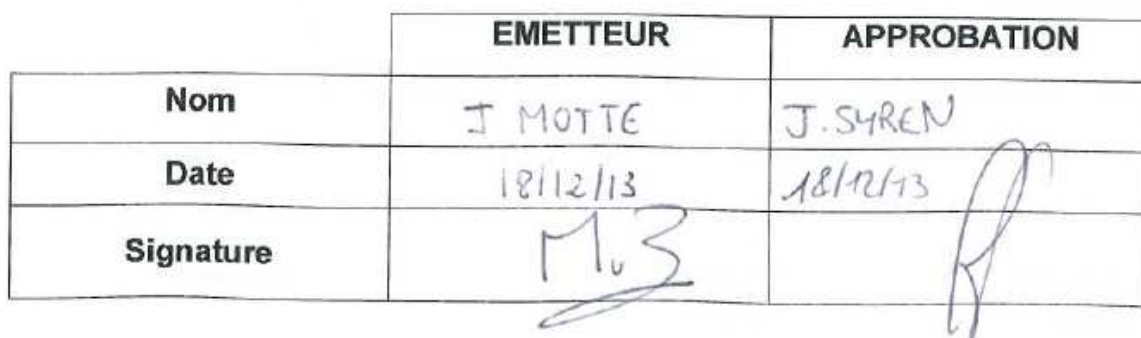 EMETTEUR APPROBATION
Nom J MOTTE J. SYREN
Date 18/12/13 18/12/13
Signature